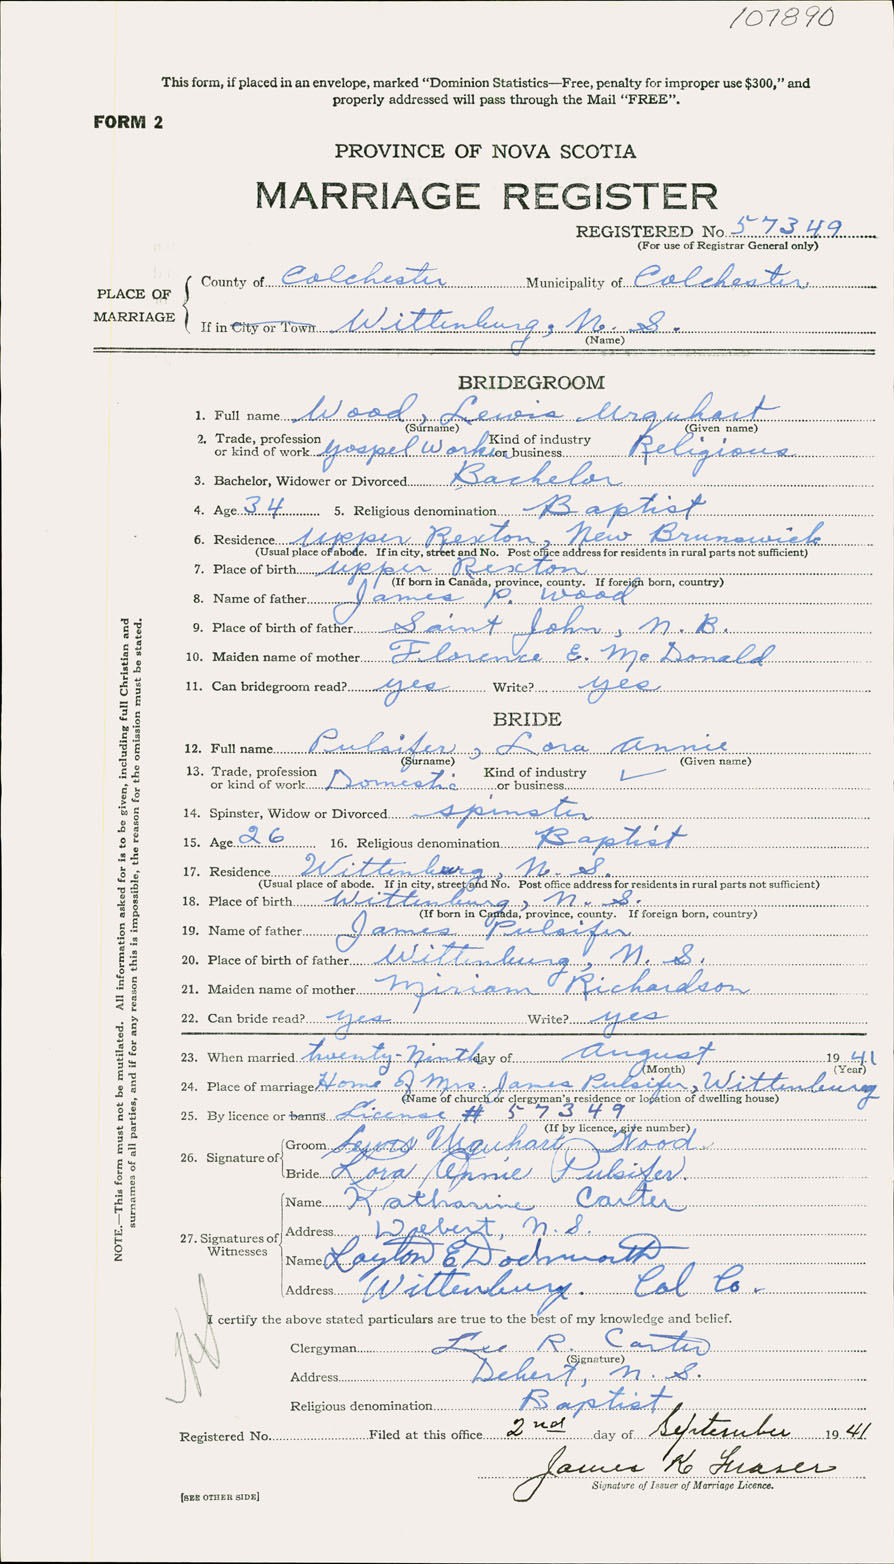 107890
This form, if placed in an envelope, marked "Dominion Statistics—Free, penalty for improper use $300," and
properly addressed will pass through the Mail "FREE".
FORM 2
PROVINCE OF NOVA SCOTIA
MARRIAGE REGISTER
REGISTERED No. 57349
(For use of Registrar General only)
PLACE OF MARRIAGE
County of Colchester Municipality of Colchester
If in City or Town Wittenburg, N. S.
(Name)
BRIDEGROOM
1. Full name Wood, Lewis Urquhart
(Surname) (Given name)
2. Trade, profession or kind of work Gospel Worker Kind of industry or business Religious
3. Bachelor, Widower or Divorced Bachelor
4. Age 34 5. Religious denomination Baptist
6. Residence Upper Rexton, New Brunswick
(Usual place of abode. If in city, street and No. Post office address for residents in rural parts not sufficient)
7. Place of birth Upper Rexton
(If born in Canada, province, county. If foreign born, country)
8. Name of father James P. Wood
9. Place of birth of father Saint John, N. B.
10. Maiden name of mother Florence E. McDonald
11. Can bridegroom read? yes Write? yes
BRIDE
12. Full name Pulsifer, Lora Annie
(Surname) (Given name)
13. Trade, profession or kind of work Domestic Kind of industry or business ✓
14. Spinster, Widow or Divorced spinster
15. Age 26 16. Religious denomination Baptist
17. Residence Wittenburg, N. S.
(Usual place of abode. If in city, street and No. Post office address for residents in rural parts not sufficient)
18. Place of birth Wittenburg, N. S.
(If born in Canada, province, county. If foreign born, country)
19. Name of father James Pulsifer
20. Place of birth of father Wittenburg, N. S.
21. Maiden name of mother Miriam Richardson
22. Can bride read? yes Write? yes
23. When married twenty-Ninth day of August 19 41
(Month) (Year)
24. Place of marriage Home of Mrs. James Pulsifer, Wittenburg
(Name of church or clergyman's residence or location of dwelling house)
25. By licence or banns License # 57349
(If by licence, give number)
26. Signature of
Groom Lewis Urquhart Wood
Bride Lora Annie Pulsifer.
27. Signatures of Witnesses
Name Katharine Carter
Address Debert, N. S.
Name Layton E Dodsworth
Address Wittenburg. Col Co.
I certify the above stated particulars are true to the best of my knowledge and belief.
Clergyman Lee R. Carter
(Signature)
Address Debert, N. S.
Religious denomination Baptist
Registered No. Filed at this office 2nd day of September 19 41
James K Fraser
Signature of Issuer of Marriage Licence.
[SEE OTHER SIDE]
NOTE.—This form must not be mutilated. All information asked for is to be given, including full Christian and
surnames of all parties, and if for any reason this is impossible, the reason for the omission must be stated.